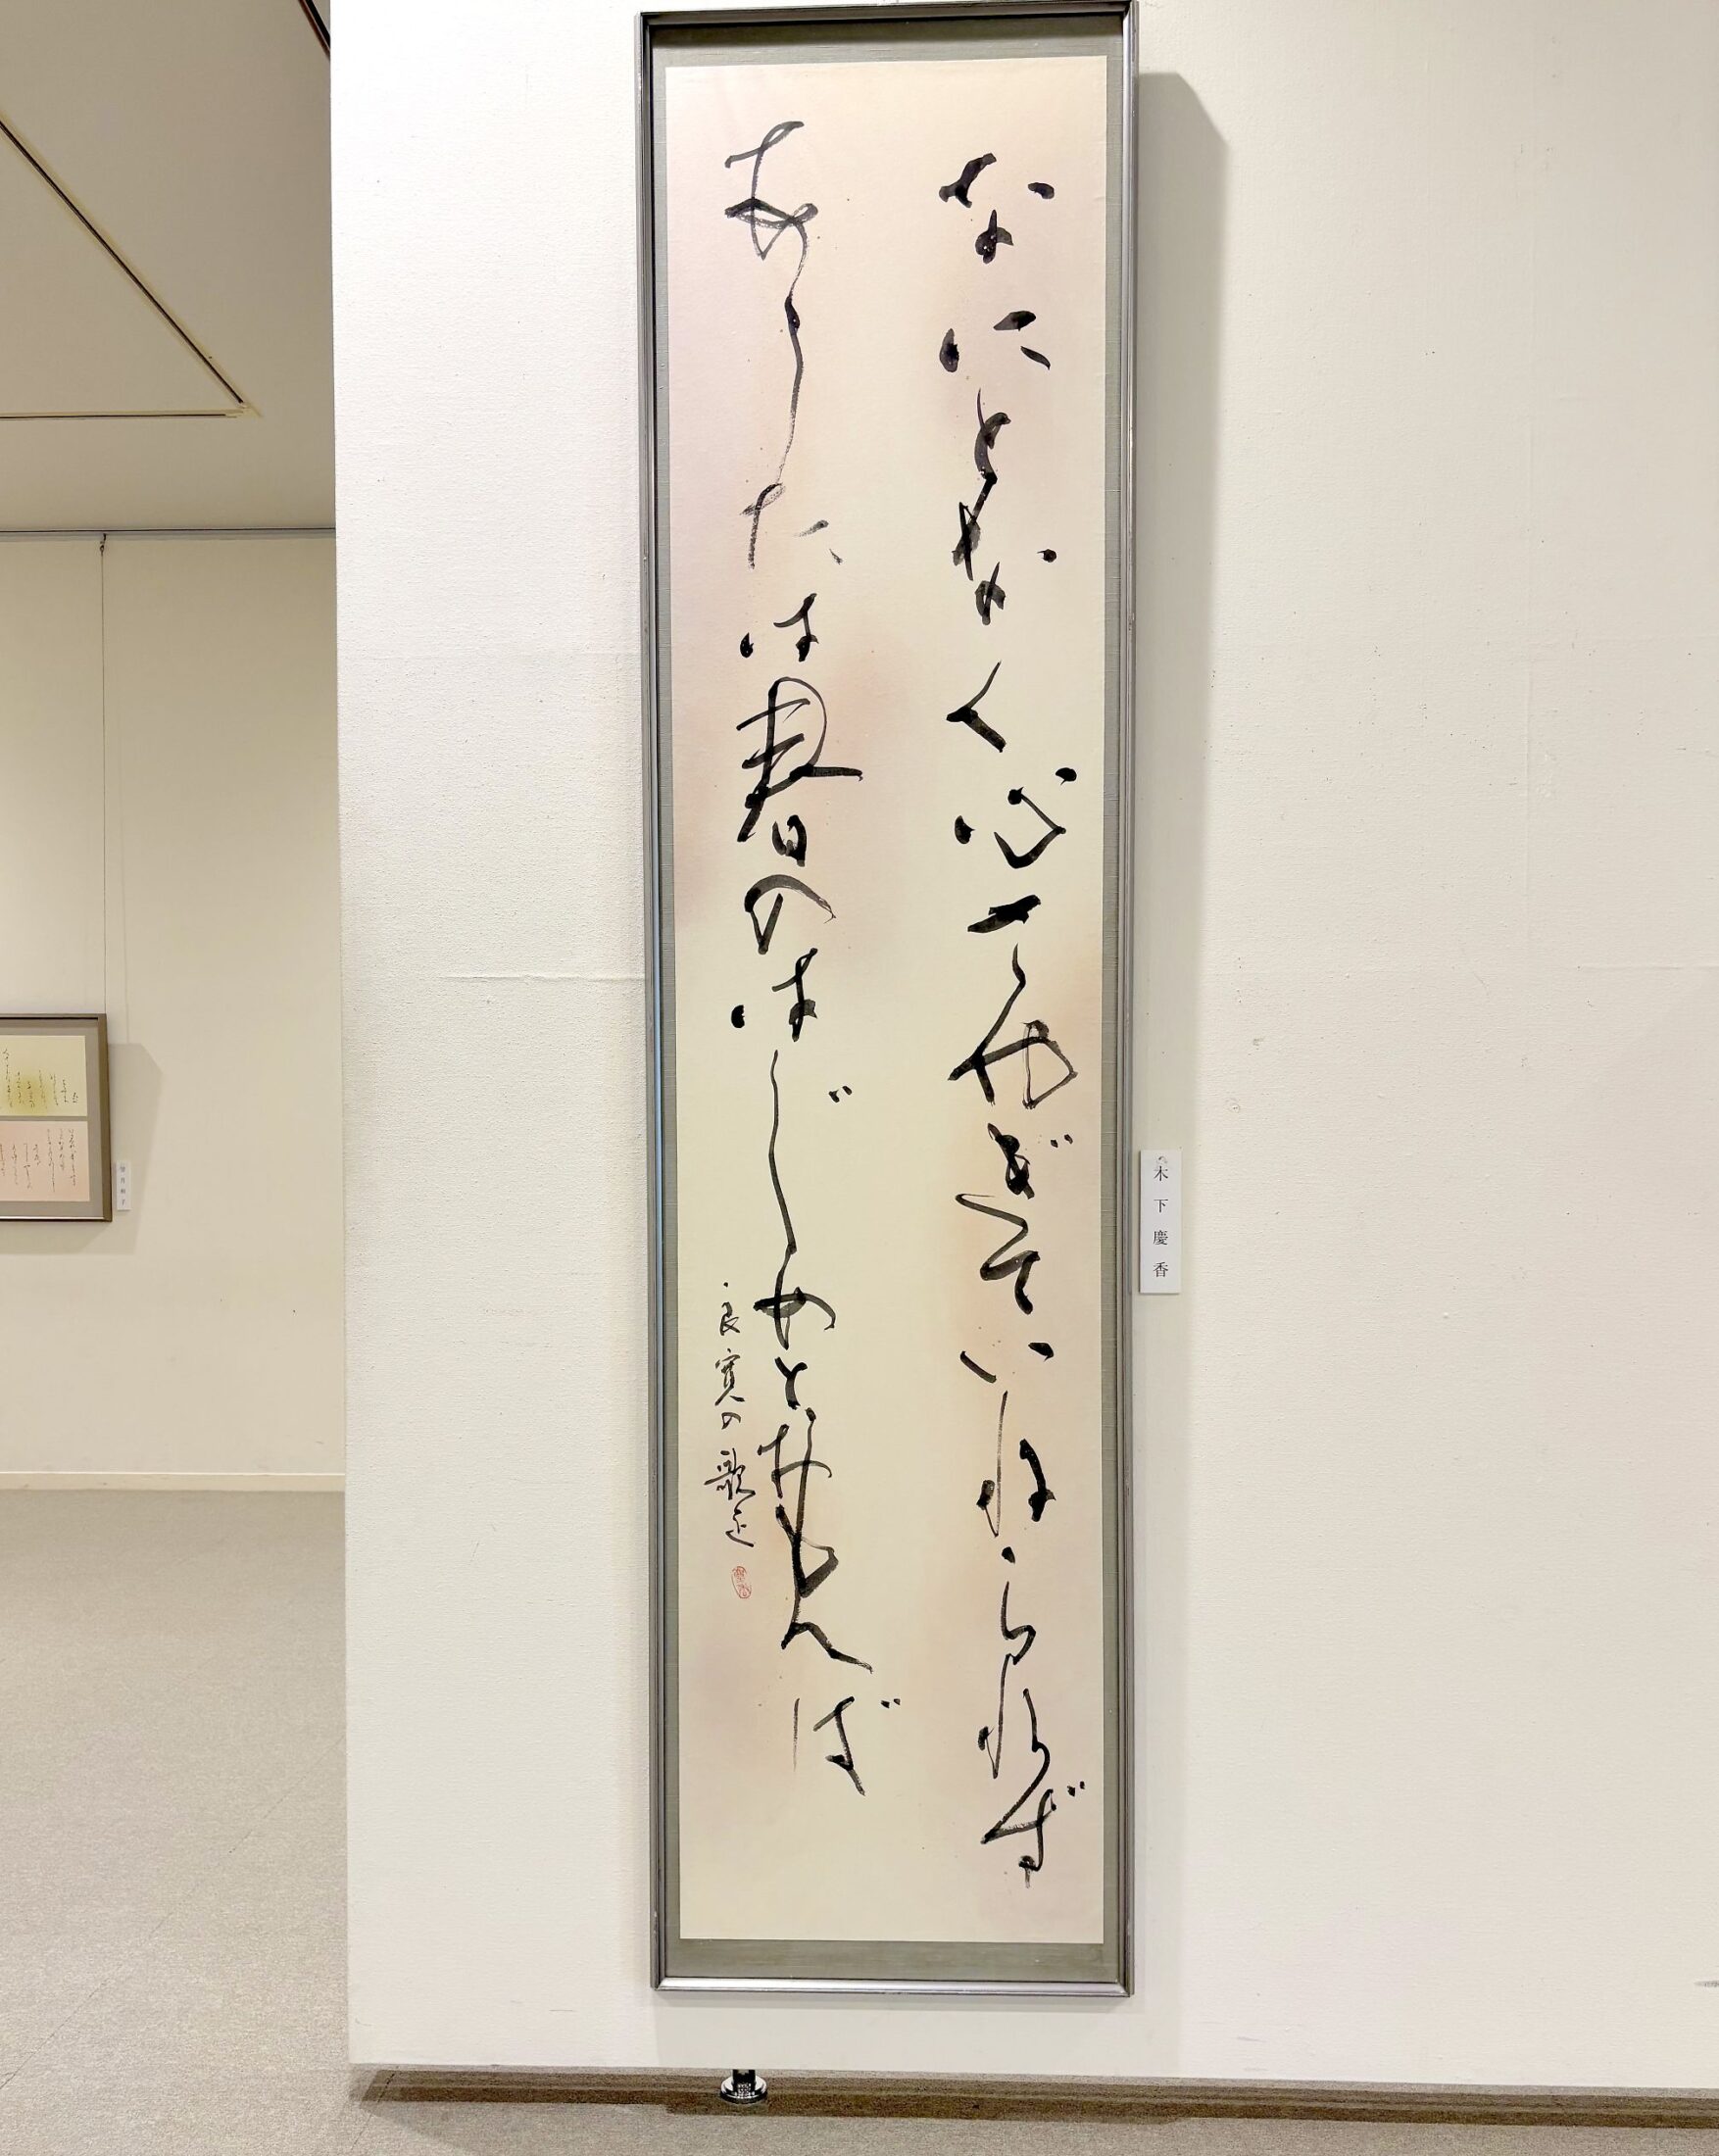 なにとなく心さやぎていねられず
あしたは春のはじめとおもへば
良寛の歌
木下慶香